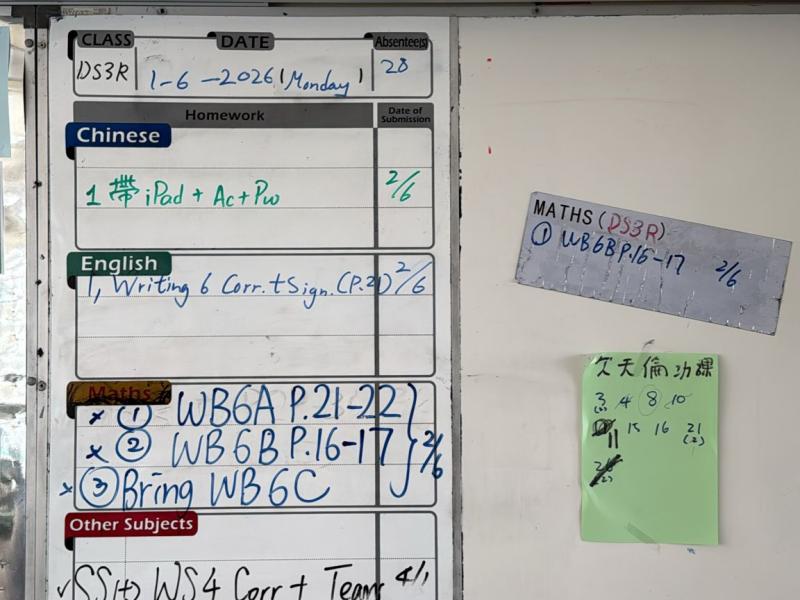 CLASS DATE Absentee(s)
DS3R 1-6-2026 (Monday) 28
Homework Date of Submission
Chinese
1 帶 iPad + Ac + Pw 2/6
English
1, Writing 6 Corr. + Sign. (P.21) 2/6
Maths
x ① WB6A P.21-22
x ② WB6B P.16-17 2/6
x ③ Bring WB6C
Other Subjects
WS4 Corr +
MATHS (DS3R)
① WB6B P.16-17 2/6
欠天倫功課
3 4 8 10
11 15 16 21
(2)